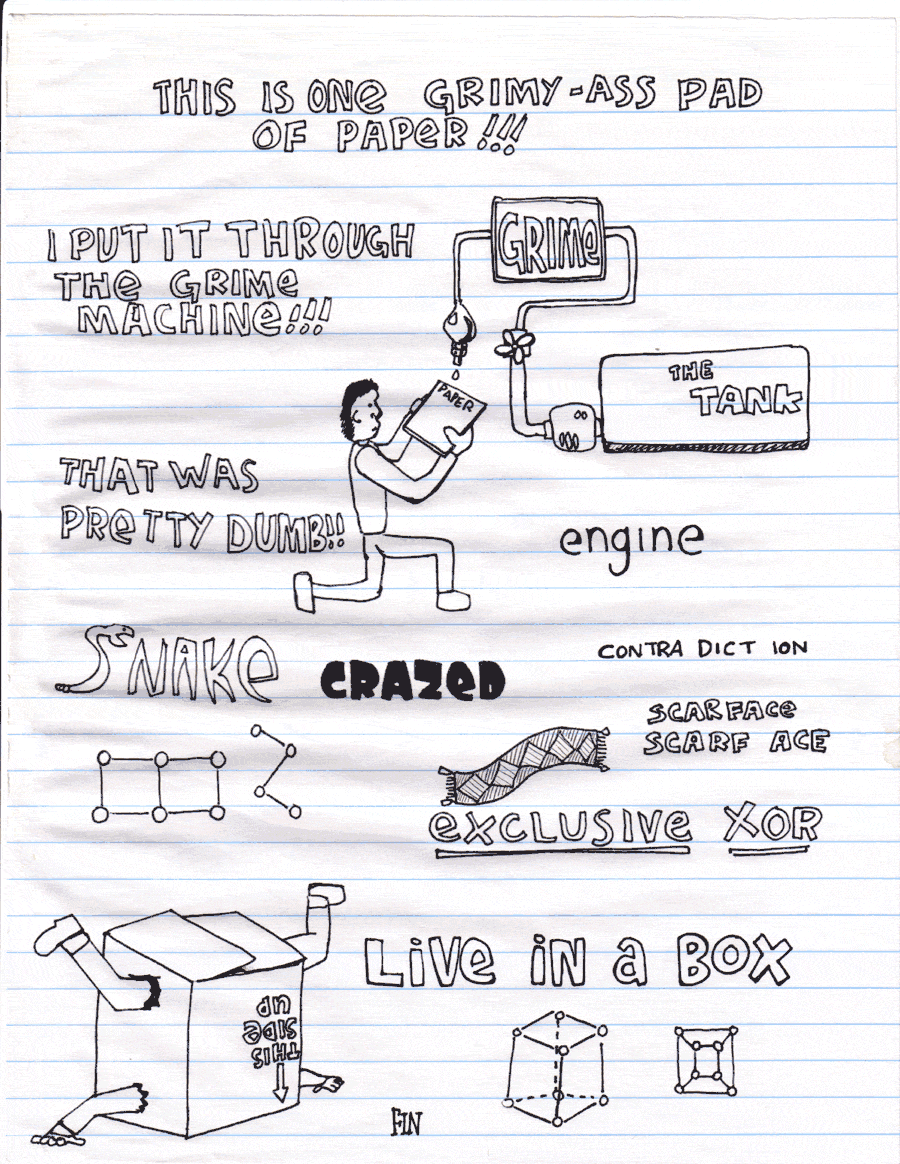 THIS IS ONe GRIMY-ASS PAD
OF PAPeR!!!
I PUT IT THROUGH
THe GRIMe
MACHINe!!!
GRIMe
PAPER
THe
TANK
THAT WAS
PReTTY DUMB!!
engine
SNAKe
CRAZeD
CONTRA DICT ION
SCARFACe
SCARF ACE
eXCLUSIVe XOR
LiVe iN a BOX
THIS
SIDe
UP
FIN